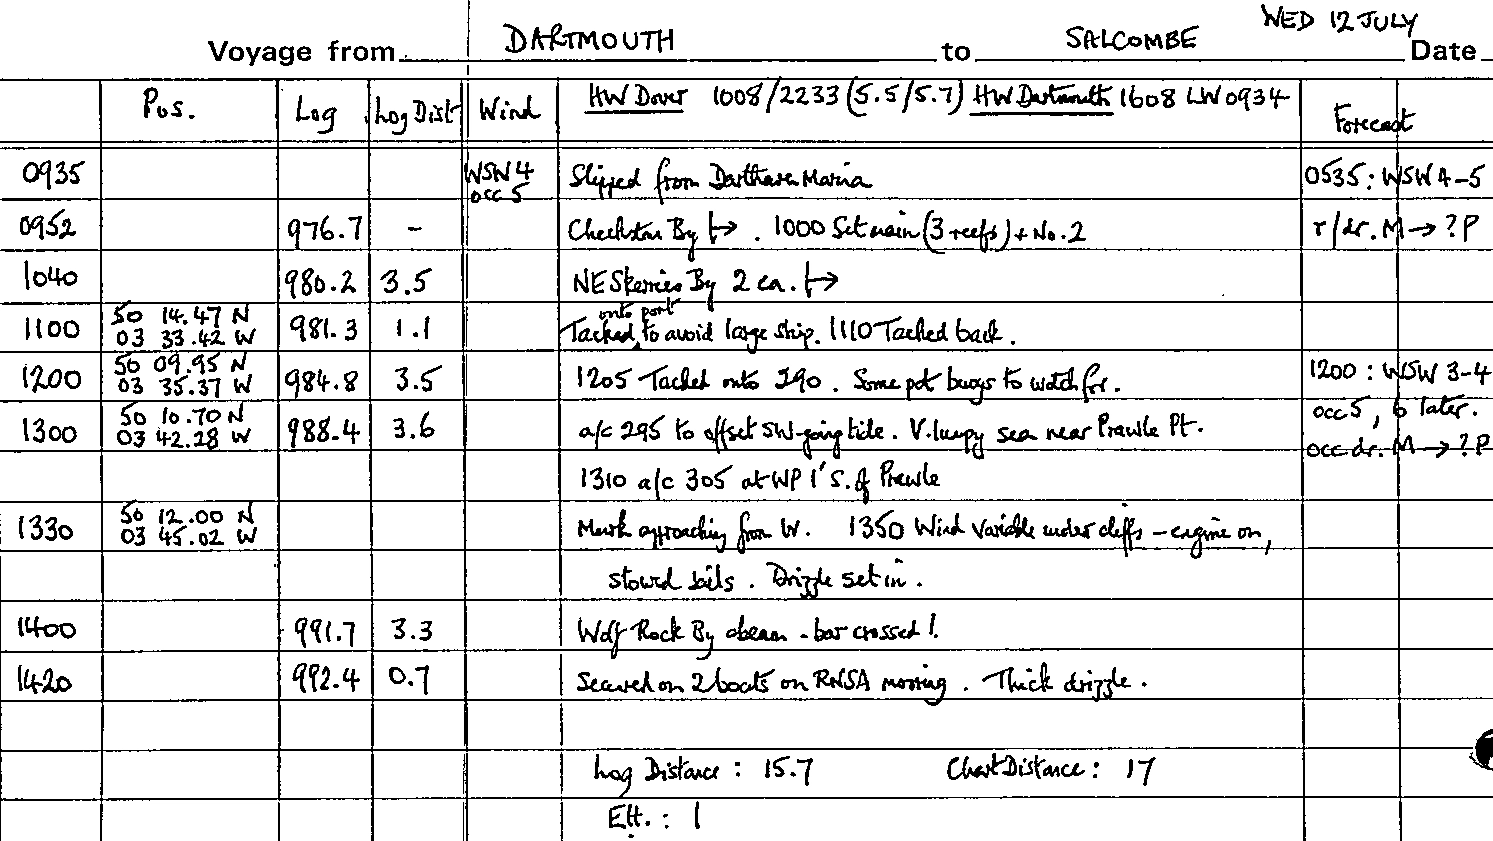 WED 12 JULY
Voyage from DARTMOUTH to SALCOMBE Date
Pos. Log Log Dist Wind HW Dover 1008/2233 (5.5/5.7) HW Dartmouth 1608 LW 0934 Forecast
0935 WSW 4 Slipped from Darthaven Marina 0535: WSW 4-5
occ 5
0952 976.7 - Checkstone By |→ . 1000 Set main (3 reefs) + No. 2 r/dr. M → ? P
1040 980.2 3.5 NE Skerries By 2 ca. |→
50 14.47 N onto port
1100 03 33.42 W 981.3 1.1 Tacked to avoid large ship. 1110 Tacked back.
50 09.95 N
1200 03 35.37 W 984.8 3.5 1205 Tacked onto 290. Some pot buoys to watch for. 1200: WSW 3-4
50 10.70 N occ 5, 6 later.
1300 03 42.28 W 988.4 3.6 a/c 295 to offset SW-going tide. V. lumpy sea near Prawle Pt. occ dr. M → ? P
1310 a/c 305 at WP 1' S. of Prawle
50 12.00 N
1330 03 45.02 W approaching from W. 1350 Wind variable under cliffs - engine on,
stowed sails. Drizzle set in.
1400 991.7 3.3 Wolf Rock By abeam - bar crossed!
1420 992.4 0.7 Secured on 2 boats on RNSA mooring. Thick drizzle.
Log Distance: 15.7 Chart Distance: 17
1